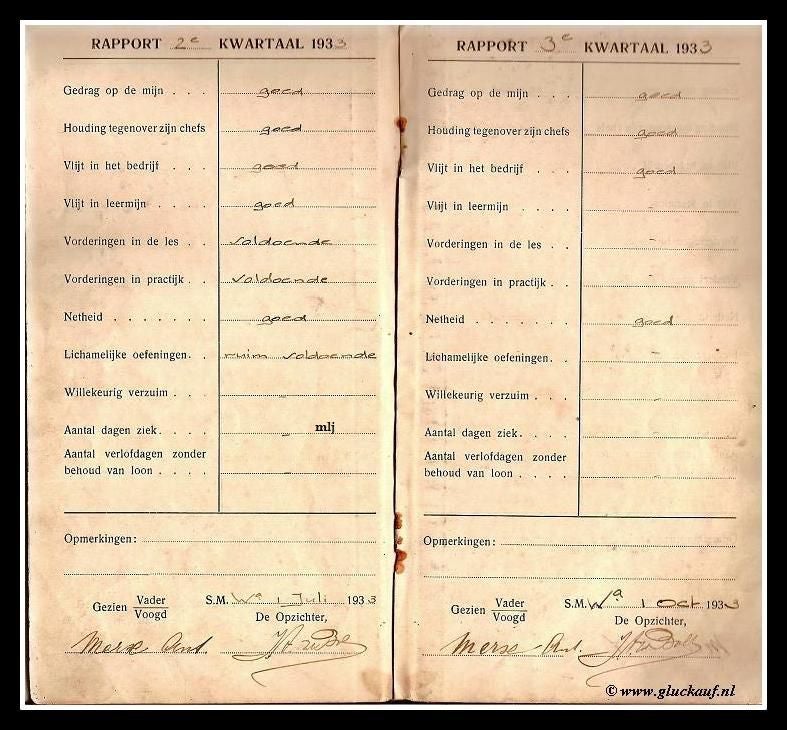 RAPPORT 2e KWARTAAL 1933
Gedrag op de mijn . . . goed
Houding tegenover zijn chefs goed
Vlijt in het bedrijf . . . goed
Vlijt in leermijn . . . . goed
Vorderingen in de les . . voldoende
Vorderingen in practijk . . voldoende
Netheid . . . . . . . goed
Lichamelijke oefeningen. . ruim voldoende
Willekeurig verzuim . . . -
Aantal dagen ziek. . . . - mlj
Aantal verlofdagen zonder
behoud van loon . . . . -
Opmerkingen:
Gezien Vader
Voogd
S.M. Wa 1 Juli 1933
De Opzichter,
RAPPORT 3e KWARTAAL 1933
Gedrag op de mijn . . . goed
Houding tegenover zijn chefs goed
Vlijt in het bedrijf . . . goed
Vlijt in leermijn . . . . -
Vorderingen in de les . . -
Vorderingen in practijk . . -
Netheid . . . . . . . goed
Lichamelijke oefeningen. . -
Willekeurig verzuim . . . -
Aantal dagen ziek. . . . -
Aantal verlofdagen zonder
behoud van loon . . . . -
Opmerkingen:
Gezien Vader
Voogd
S.M. Wa 1 Oct 1933
De Opzichter,
© www.gluckauf.nl